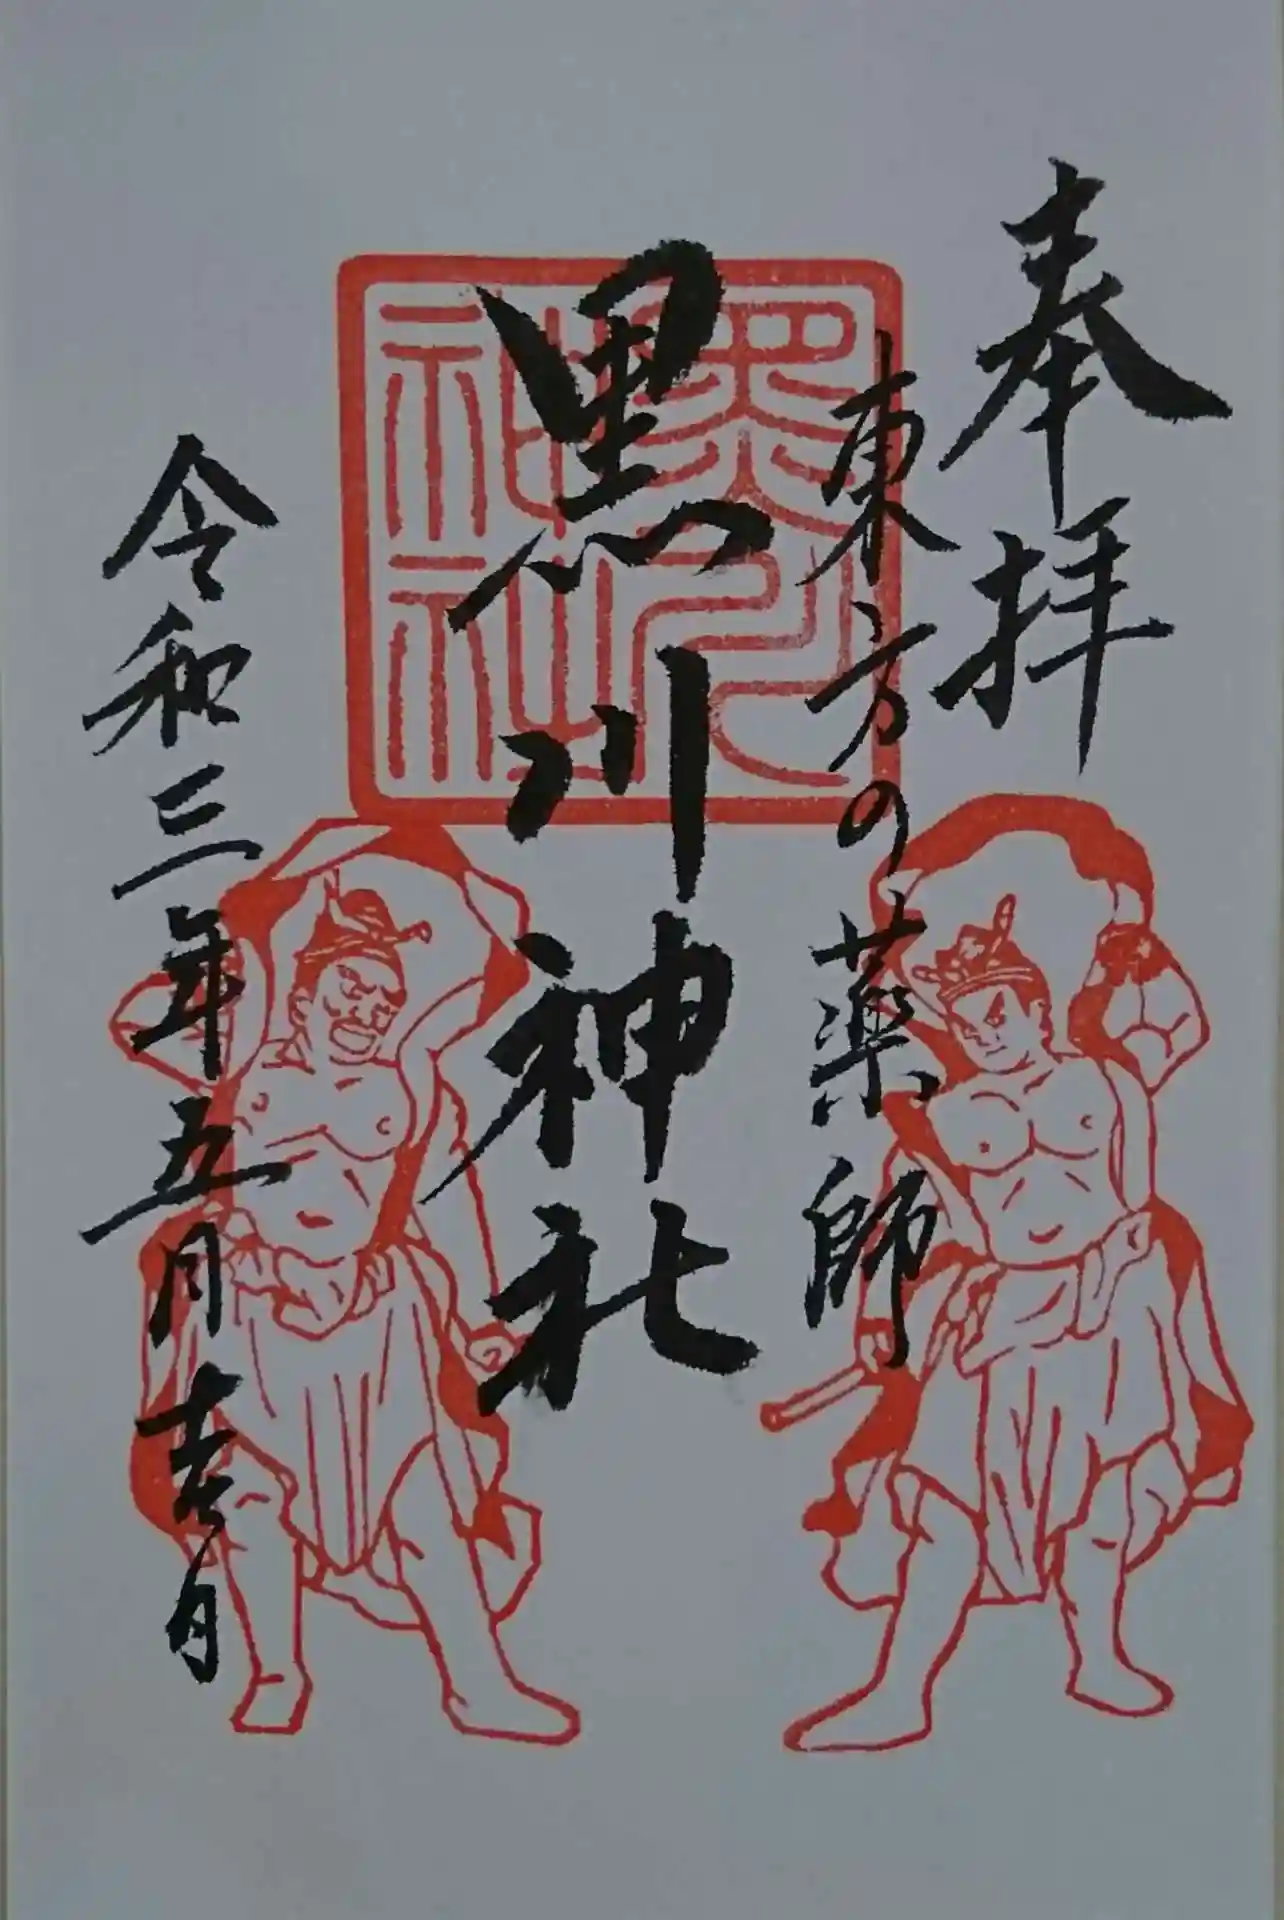 奉拝
東方の薬師
黒川神社
令和三年五月吉日
黒川神社